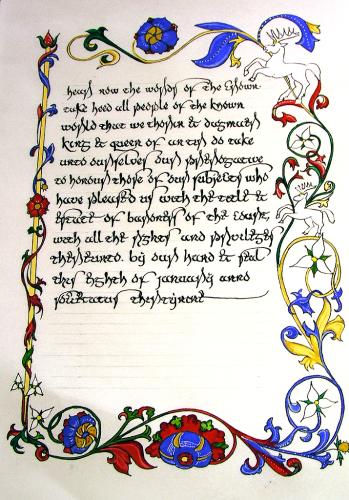 hears now the words of the Crown
take heed all people of the known
world that we thorin & dagmar
king & queen of an tir do take
unto ourselves our prerogative
to honour those of our subjects who
have pleased us with the title &
estate of baroness of the court,
with all the rights and privileges
thereunto. by our hand & seal
this eighth of january anno
societatus